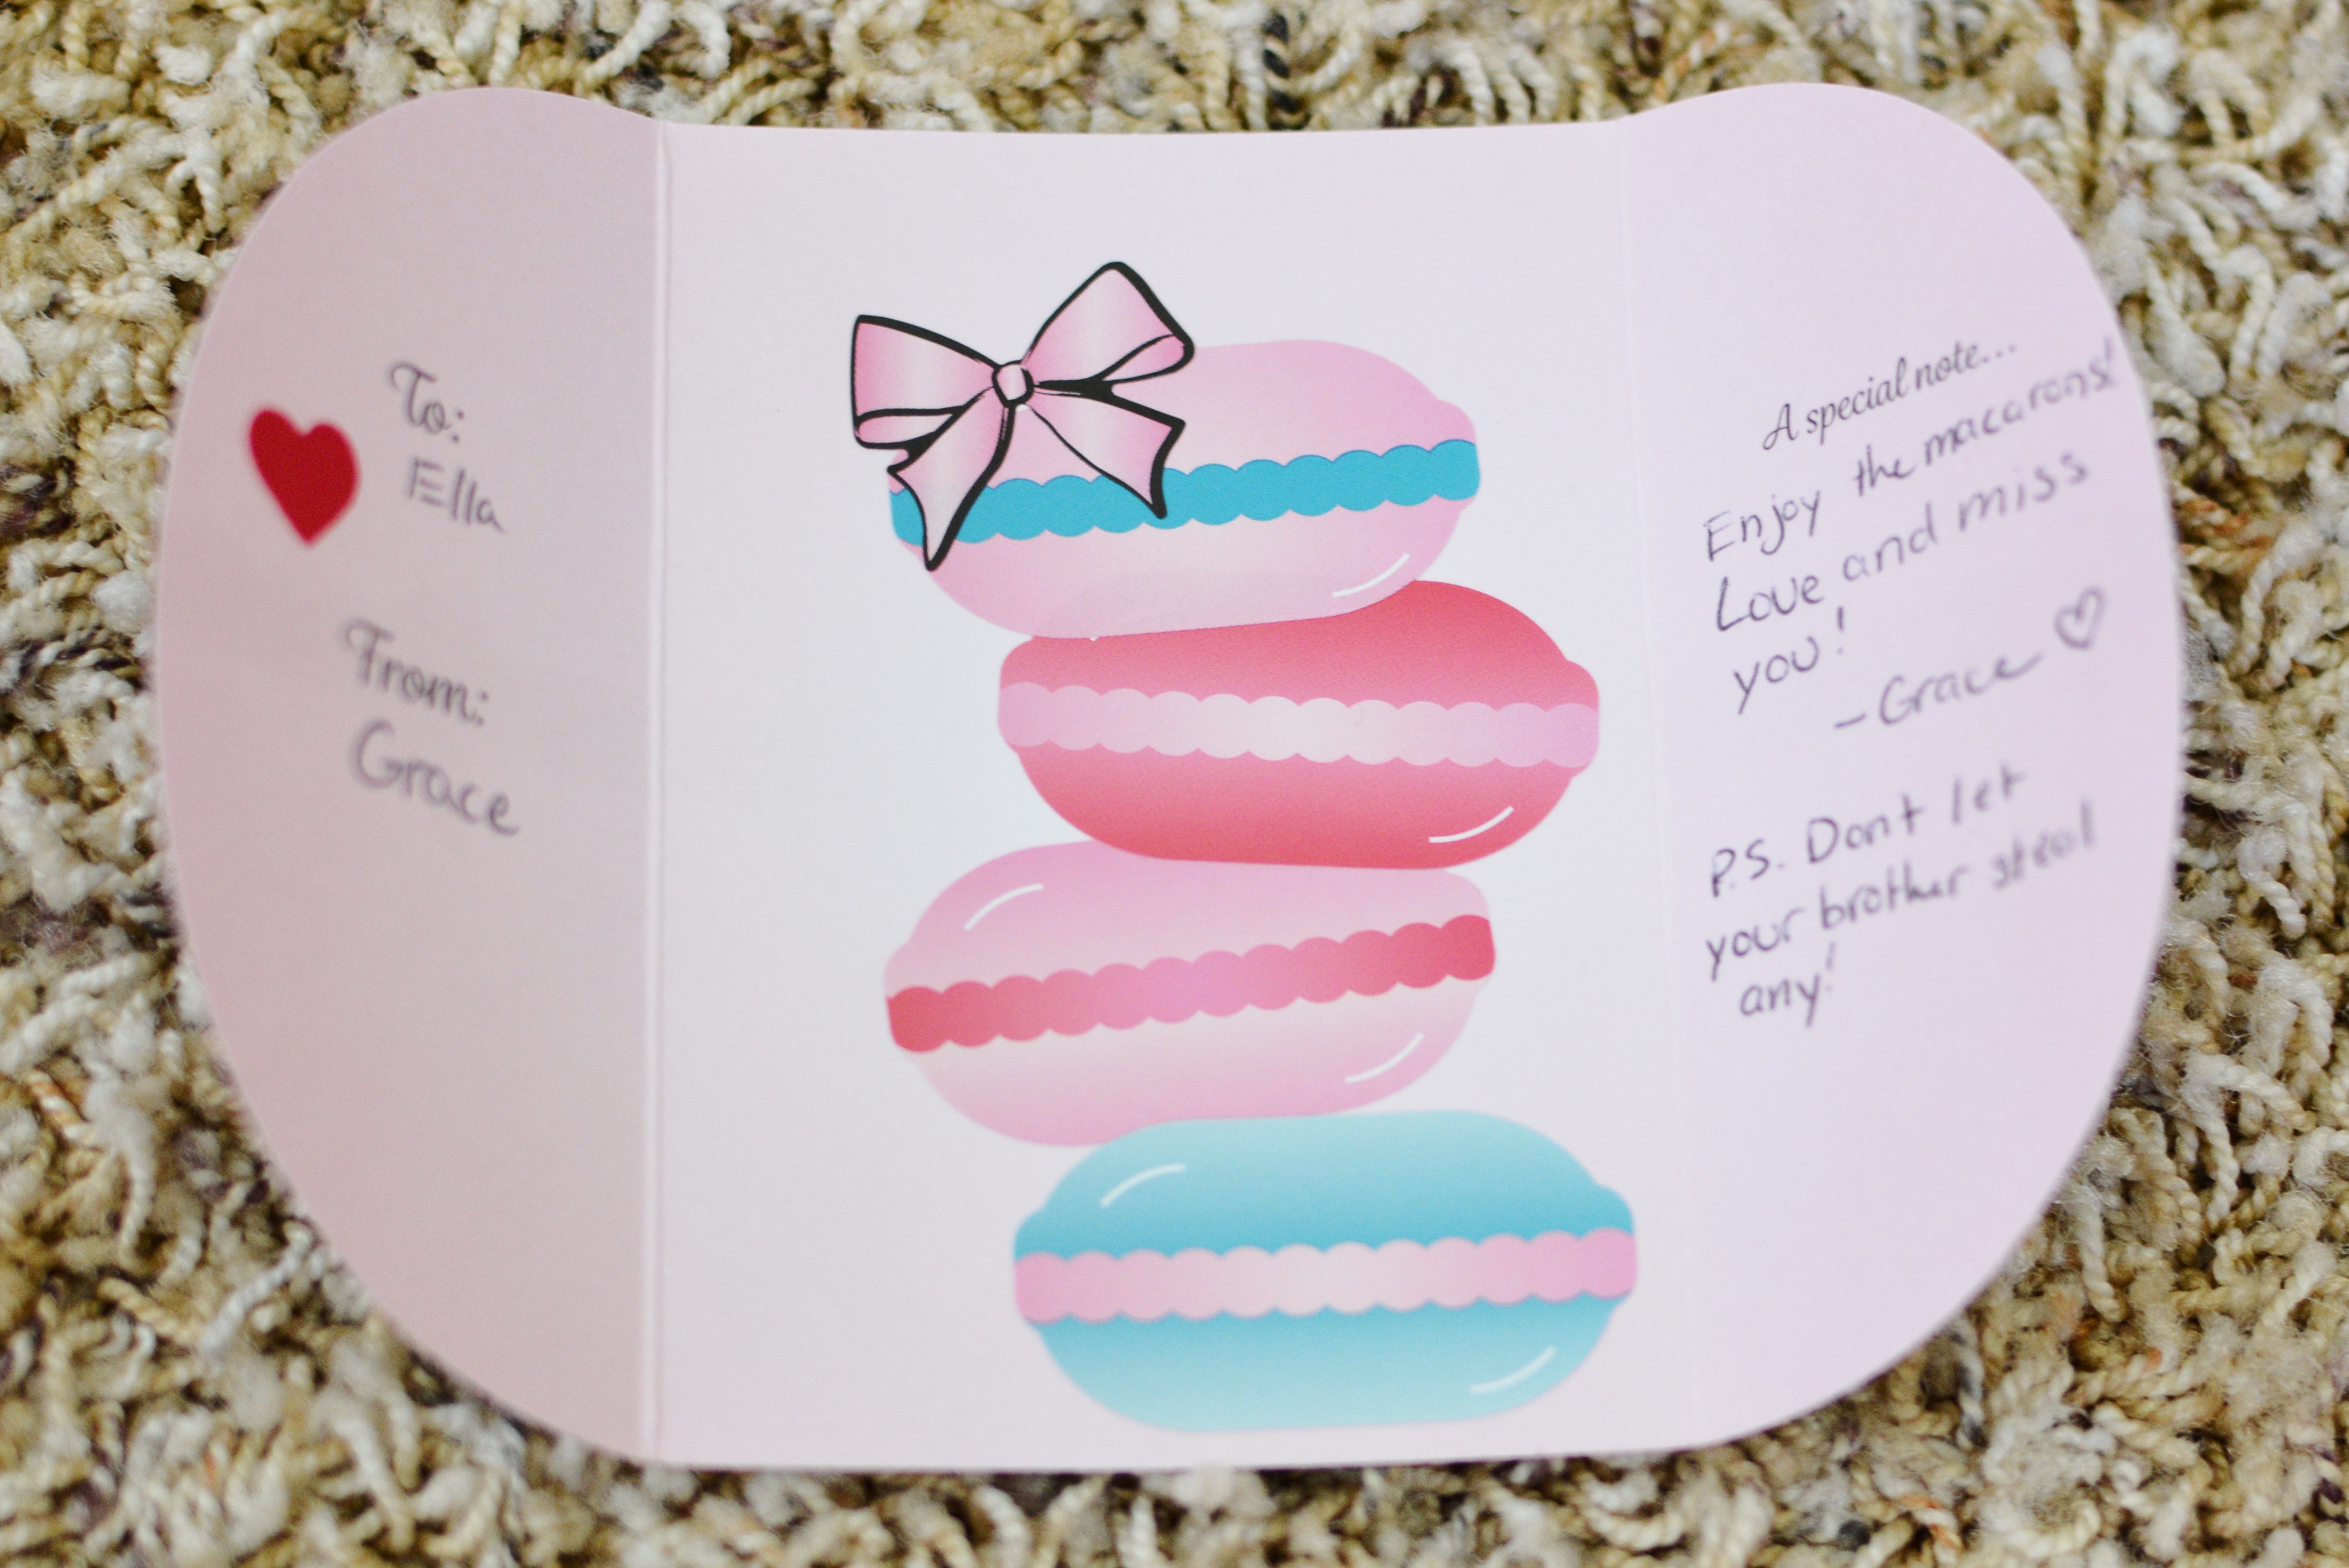 To:
Ella
From:
Grace
A special note...
Enjoy the macarons!
Love and miss
you!
- Grace ♡
P.S. Dont let
your brother steal
any!